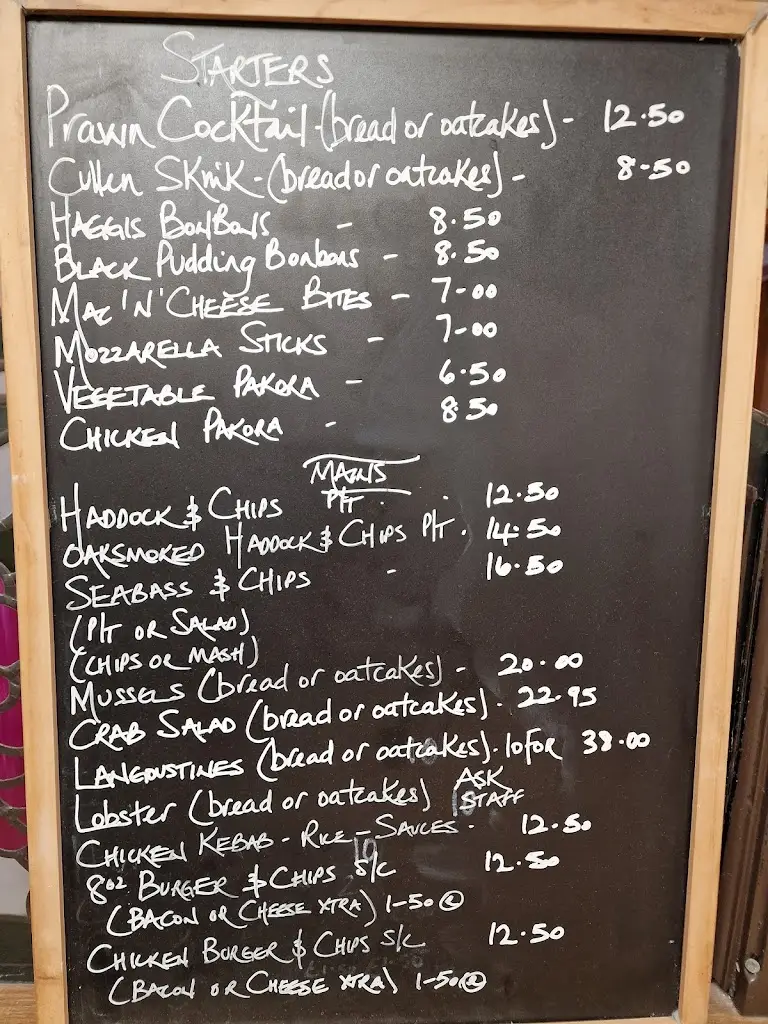 STARTERS
Prawn Cocktail - (bread or oatcakes) - 12.50
Cullen Skink - (bread or oatcakes) - 8-50
HAGGIS BONBONS - 8.50
BLACK Pudding Bonbons - 8.50
MAC 'N' CHEESE BITES - 7-00
MOZZARELLA STICKS - 7-00
VEGETABLE PAKORA - 6.50
CHICKEN PAKORA - 8.50
MAINS
HADDOCK & CHIPS P/T . 12.50
OAKSMOKED HADDOCK & CHIPS P/T . 14.50
SEABASS & CHIPS - 16.50
(P/T OR SALAD)
(CHIPS OR MASH)
MUSSELS (bread or oatcakes) - 20.00
CRAB SALAD (bread or oatcakes) . 22.95
LANGOUSTINES (bread or oatcakes) . 10 FOR 38.00
Lobster (bread or oatcakes) ASK STAFF
CHICKEN KEBAB - RICE - SAUCES . 12.50
8oz BURGER & CHIPS S/C 12.50
(BACON OR CHEESE XTRA) 1-50 @
CHICKEN BURGER & CHIPS S/C 12.50
(BACON OR CHEESE XTRA) 1-50 @